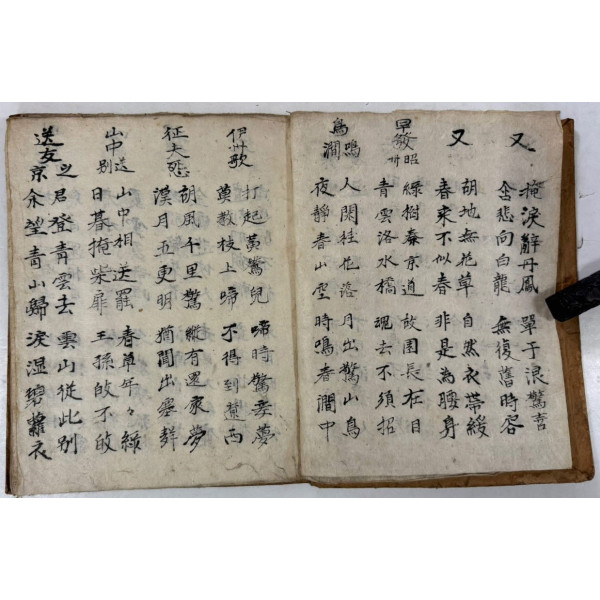 又
掩淚辭丹鳳 單于浪驚喜
含悲向白龍 無復舊時容
又
胡地無花草 自然衣帶緩
春來不似春 非是為腰身
早發昭州
綠樹秦京道 故園長在目
青雲洛水橋 魂去不須招
鳥鳴澗
人閑桂花落 月出驚山鳥
夜靜春山空 時鳴春澗中
伊州歌
打起黃鶯兒 啼時驚妾夢
莫教枝上啼 不得到遼西
征夫怨
胡風千里驚 縱有還家夢
漢月五更明 猶聞出塞聲
山中送別
山中相送罷 春草年々綠
日暮掩柴扉 王孫敀不敀
送友之京
君登青雲去 雲山從此別
余望青山歸 淚湿碧蘿衣